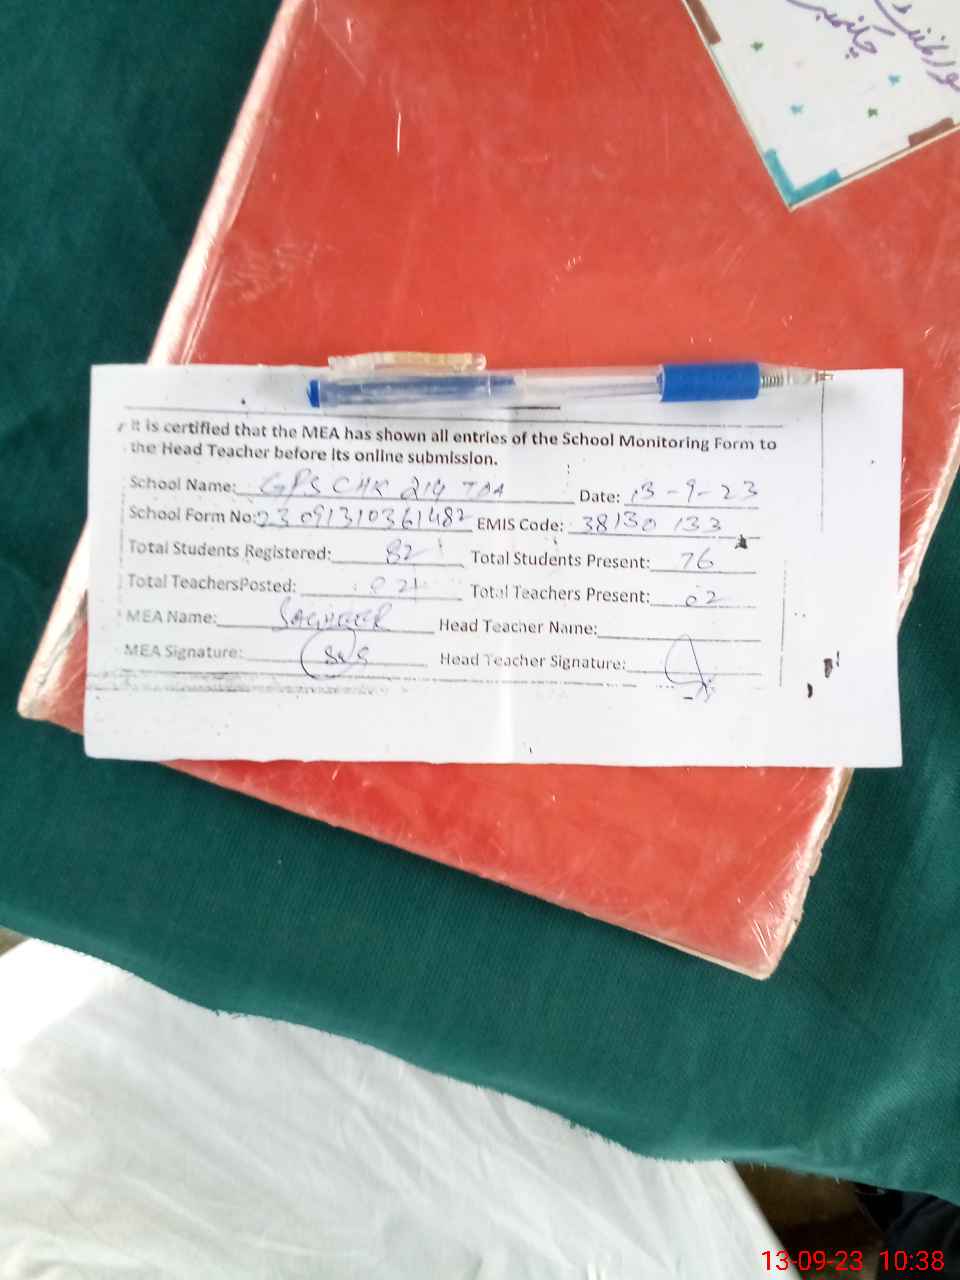 چکنمبر
It is certified that the MEA has shown all entries of the School Monitoring Form to
the Head Teacher before its online submission.
School Name: GPS CHK 214 TDA Date: 13-9-23
School Form No: 23091310361482 EMIS Code: 38130133
Total Students Registered: 82 Total Students Present: 76
Total TeachersPosted: 02 Total Teachers Present: 02
MEA Name: Head Teacher Name:
MEA Signature: Head Teacher Signature:
13-09-23 10:38